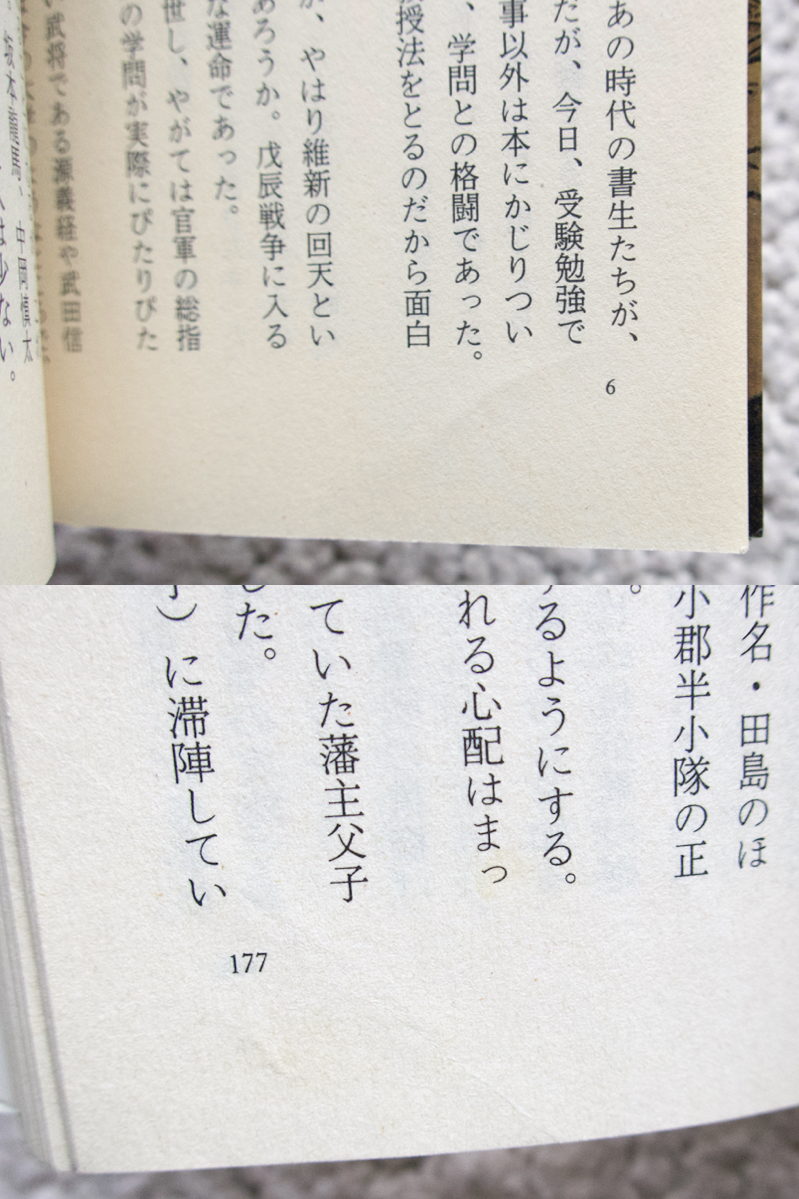 あの時代の書生たちが、
だが、今日、受験勉強で
事以外は本にかじりつい
、学問との格闘であった。
授法をとるのだから面白
、やはり維新の回天とい
あろうか。戊辰戦争に入る
な運命であった。
世し、やがては官軍の総指
の学問が実際にぴたりぴた
い武将である源義経や武田信
坂本龍馬、中岡慎太
は少ない。
6
作名・田島のほ
小郡半小隊の正
。
るようにする。
れる心配はまっ
ていた藩主父子
した。
）に滞陣してい
177